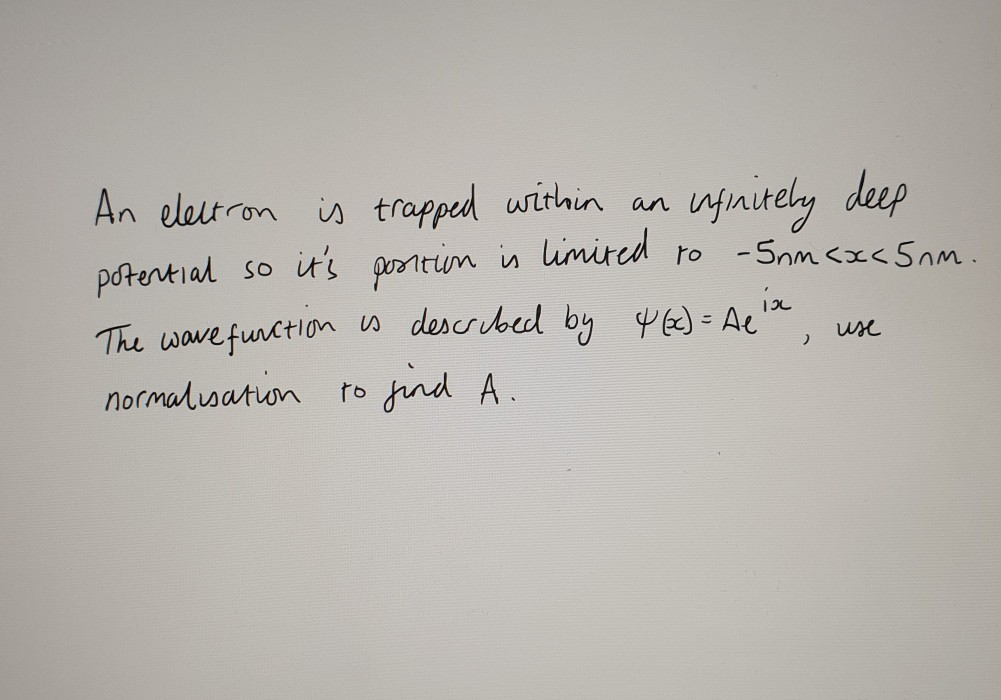 An electron is trapped within an infinitely deep
potential so it's position is limited to -5nm<x<5nm.
The wavefunction is described by ψ(x) = Ae^{ix}, use
normalisation to find A.